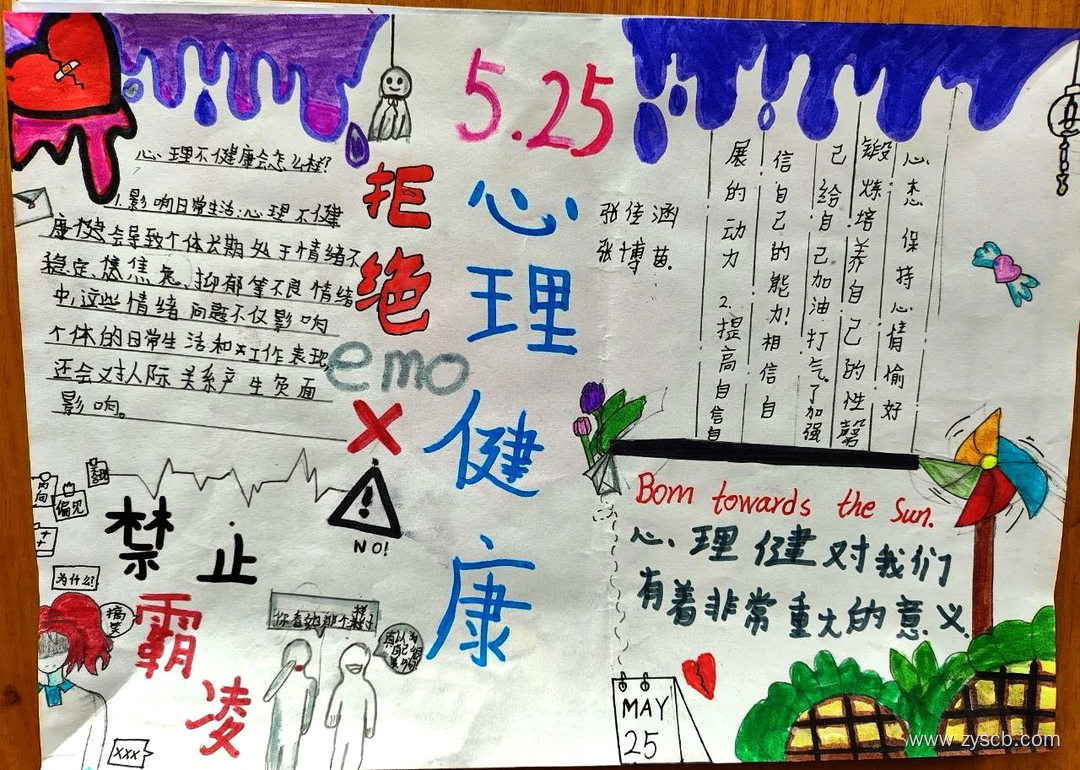 5.25
心理健康
张佳涵
张博苗
拒绝
emo
心理不健康会怎么样?
1.影响日常生活:心理不健
康健会导致个体长期处于情绪不
稳定、焦
抑郁等不良情绪
中,这些情绪问题不仅影响
个体的日常生活和
工作表现,
还会对人际关系产生负面
影响。
心态保持心情愉好
锻炼培养自己的性
己给自己加油打气。了加强
信自己的能力!相信自
展的动力 2.提高自信自
NO!
禁止
霸凌
偏见
为什么?
搞笑
你看她那个样子
真以为自己很
XXX
Born towards the Sun.
心理健对我们
有着非常重大的意义.
MAY
25
www.zyscb.com